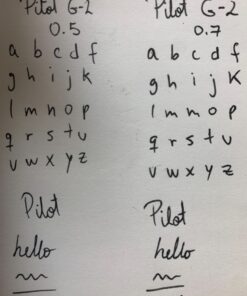 Pilot G-2
0.5
a b c d f
g h i j k
l m n o p
q r s t u
v w x y z
Pilot
hello
Pilot G-2
0.7
a b c d f
g h i j k
l m n o p
q r s t u
v w x y z
Pilot
hello